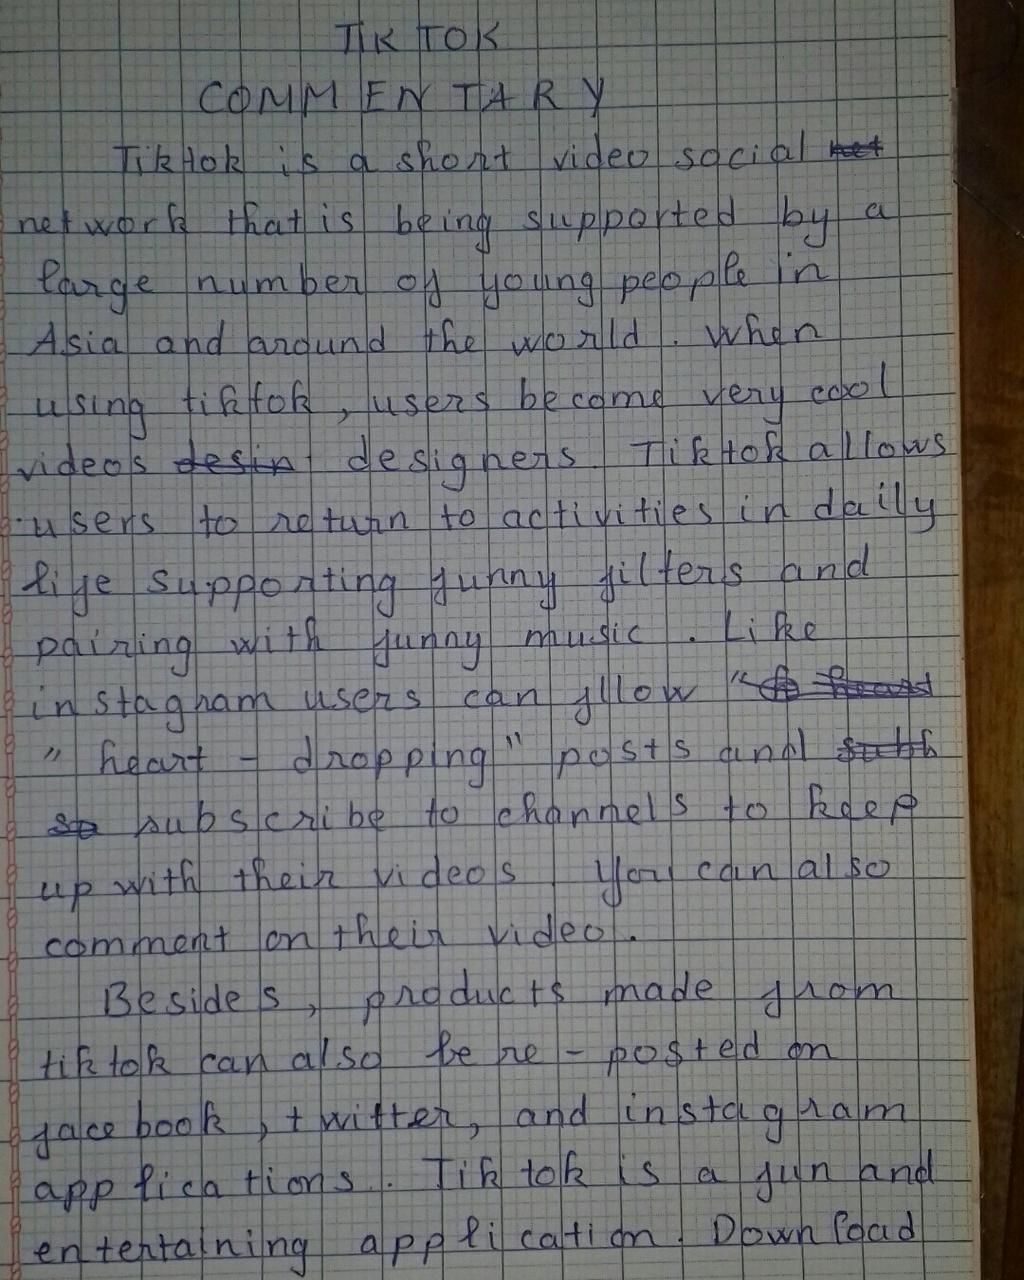 TIK TOK
COMMENTARY
Tiktok is a short video social net
network that is being supported by a
large number of young people in
Asia and around the world. When
using tiktok, users become very cool
videos desin designers. Tiktok allows
users to return to activities in daily
life supporting funny filters and
pairing with funny music. Like
instagram users can fllow "
"heart - dropping" posts and
so subscribe to channels to keep
up with their videos. You can also
comment on their video.
Besides, products made from
tiktok can also be re-posted on
facebook, twitter, and instagram
applications. Tiktok is a fun and
entertaining application. Download